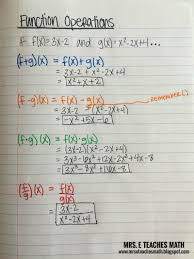 Function Operations
If f(x)=3x-2 and g(x)=x²-2x+4...
(f+g)(x) = f(x)+g(x)
= 3x-2+x²-2x+4
= x²+x+2
(f-g)(x) = f(x)-g(x)
remember!
= 3x-2-(x²-2x+4)
= -x²+5x-6
(f·g)(x) = f(x)·g(x)
= (3x-2)(x²-2x+4)
= 3x³-6x²+12x-2x²+4x-8
= 3x³-8x²+16x-8
(f/g)(x) = f(x)/g(x)
= 3x-2/x²-2x+4
MRS. E TEACHES MATH
www.mrseteachesmath.blogspot.com